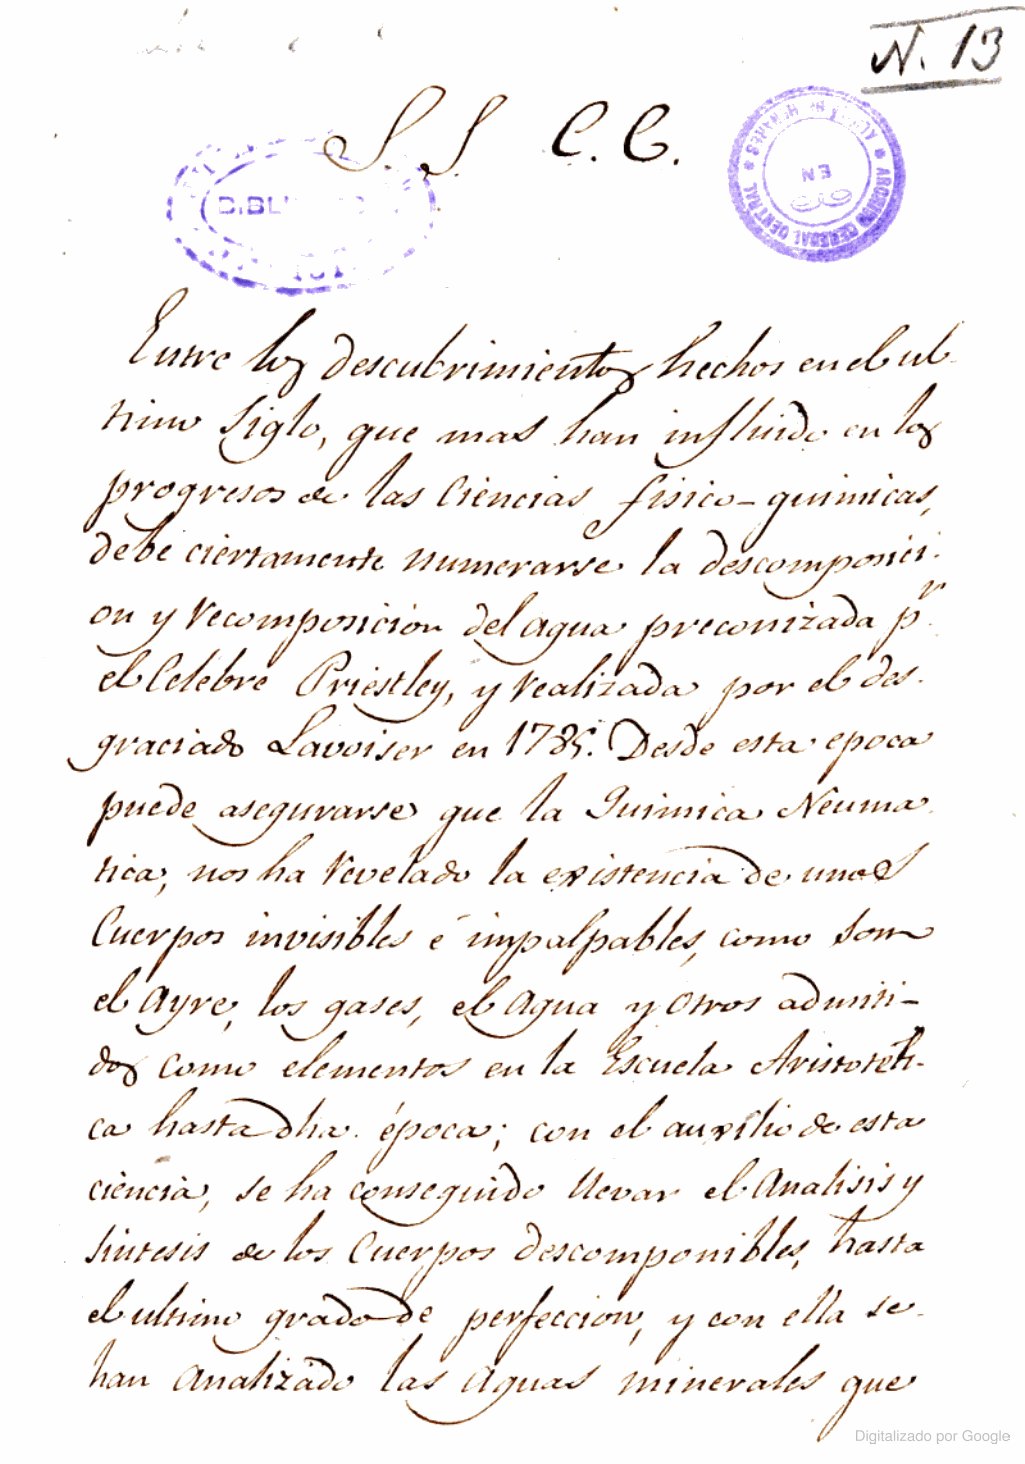 N. 13
S. S. C. C.
ARCHIVO GENERAL CENTRAL
EN
ALCALÁ DE HENARES
Entre los descubrimientos hechos en el ul-
timo siglo, que mas han influido en los
progresos de las Ciencias fisico-quimicas,
debe ciertamente numerarse la descomposici-
on y recomposicion del agua preconizada pr.
el Celebre Priestley, y realizada por el des-
graciado Lavoiser en 1785. Desde esta epoca
puede asegurarse que la Quimica Neuma-
tica, nos ha revelado la existencia de unos
Cuerpos invisibles é impalpables, como son
el Ayre, los gases, el Agua y otros admiti-
dos como elementos en la Escuela Aristoteli-
ca hasta dha. época; con el auxilio de esta
ciencia, se ha conseguido llevar el Analisis y
sintesis de los Cuerpos descomponibles, hasta
el ultimo grado de perfeccion, y con ella se
han analizado las aguas minerales que
Digitalizado por Google